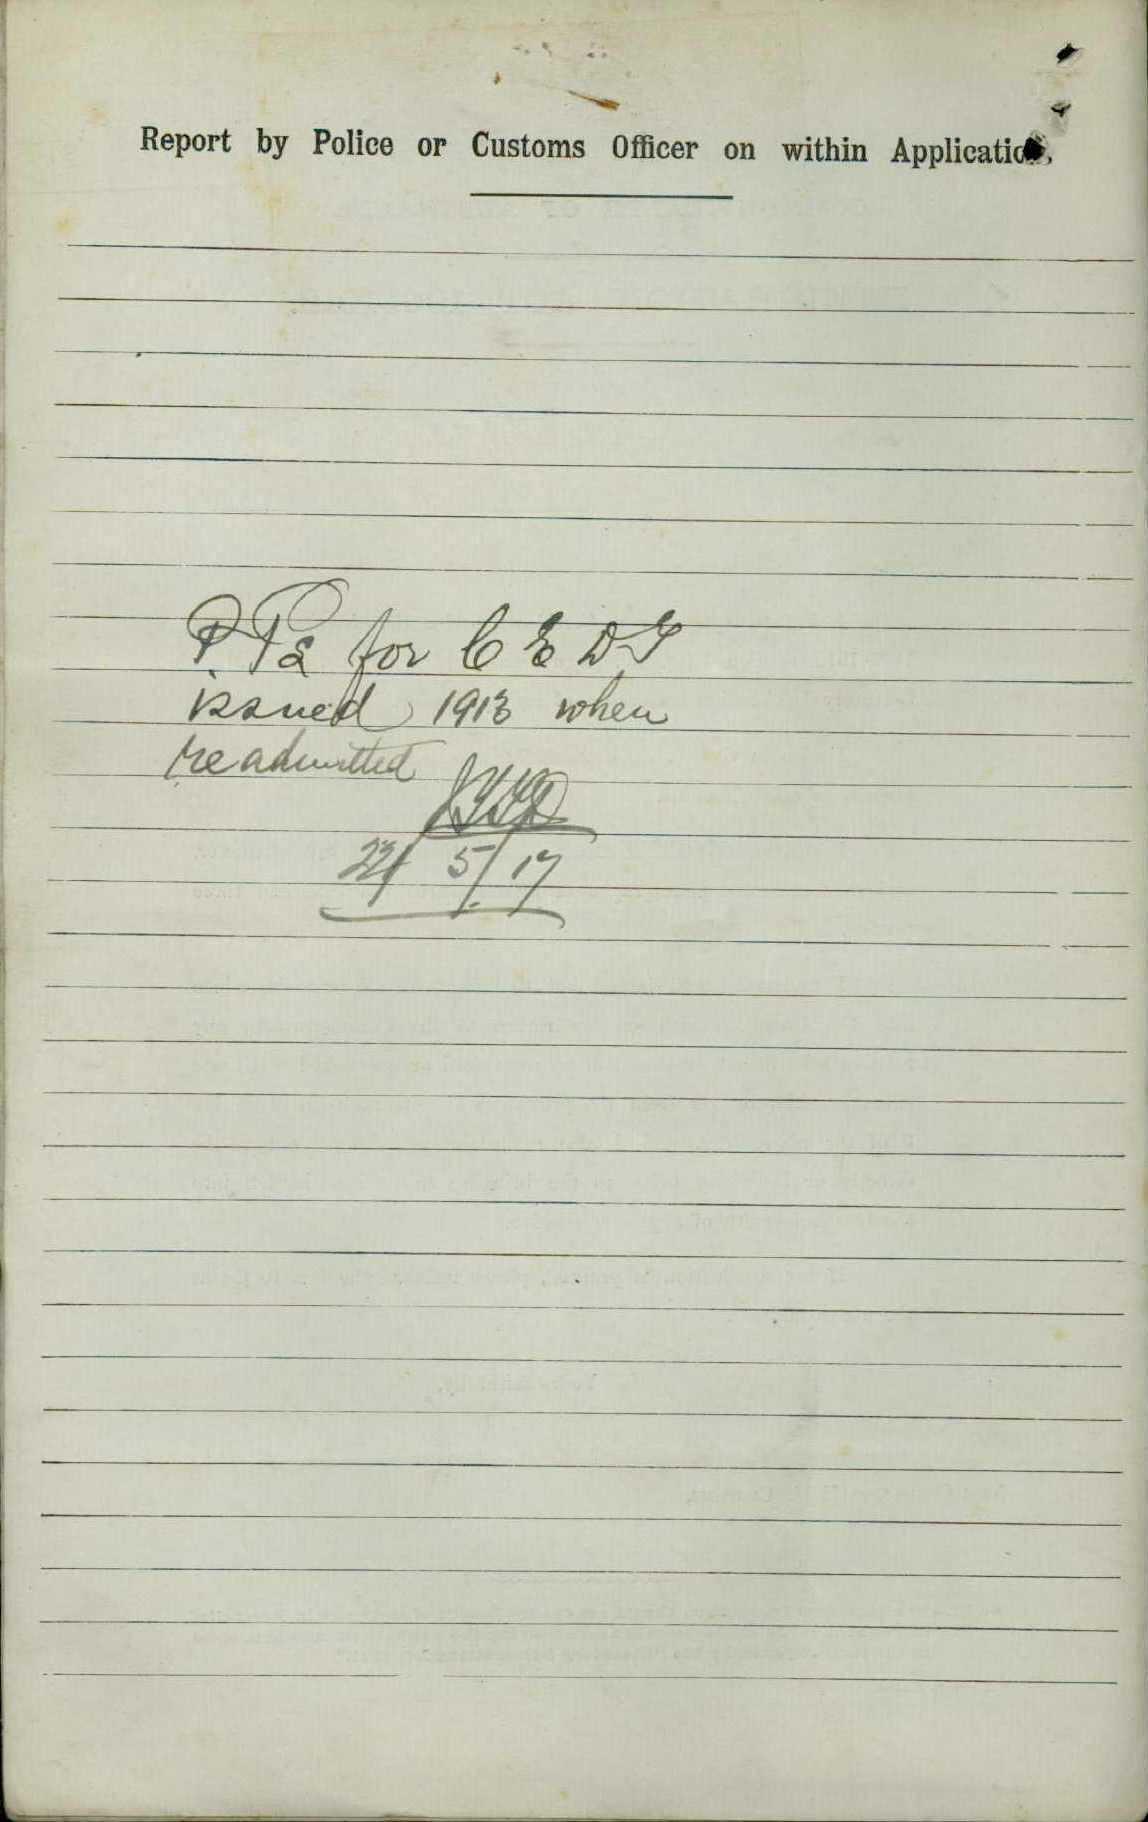 Report by Police or Customs Officer on within Application.
for C E D T
issued 1913 when
readmitted
5/17